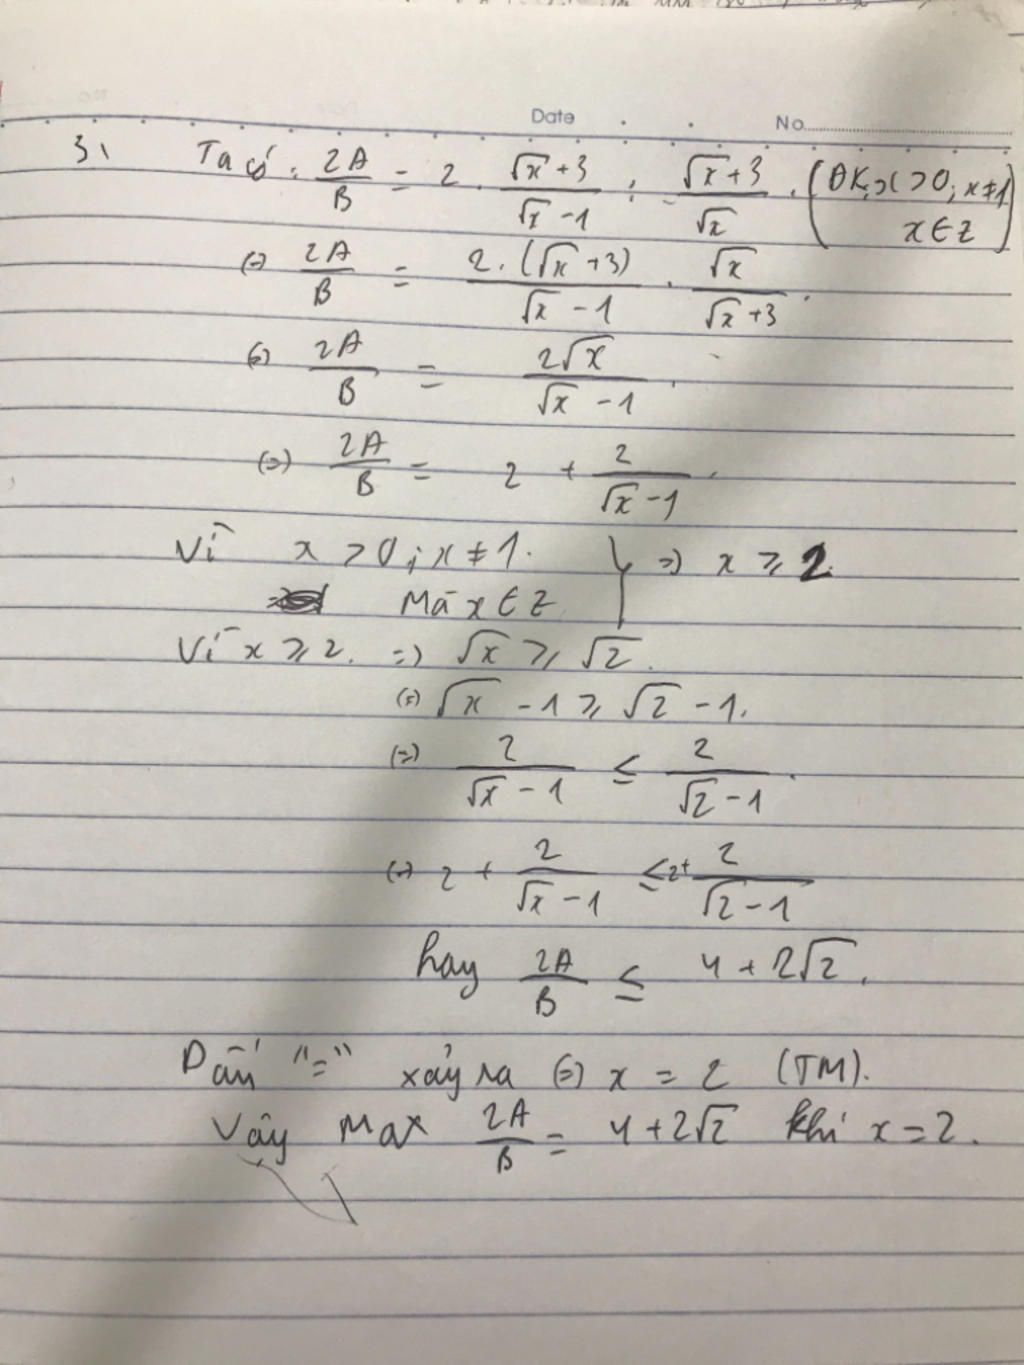 Date No.
3, Ta có: 2A/B = 2 . (√x + 3)/(√x - 1) : (√x + 3)/√x . (ĐK: x > 0; x ≠ 1 x ∈ Z)
(=) 2A/B = 2.(√x + 3)/(√x - 1) . √x/(√x + 3) .
(=) 2A/B = 2√x/(√x - 1) .
(=) 2A/B = 2 + 2/(√x - 1) .
Vì x > 0; x ≠ 1. } => x ≥ 2.
Mà x ∈ Z
Vì x ≥ 2. =) √x ≥ √2.
(=) √x - 1 ≥ √2 - 1.
(=) 2/(√x - 1) ≤ 2/(√2 - 1) .
(=) 2 + 2/(√x - 1) ≤ 2 + 2/(√2 - 1)
hay 2A/B ≤ 4 + 2√2.
Dấu "=" xảy ra (=) x = 2 (TM).
Vậy Max 2A/B = 4 + 2√2 khi x = 2.